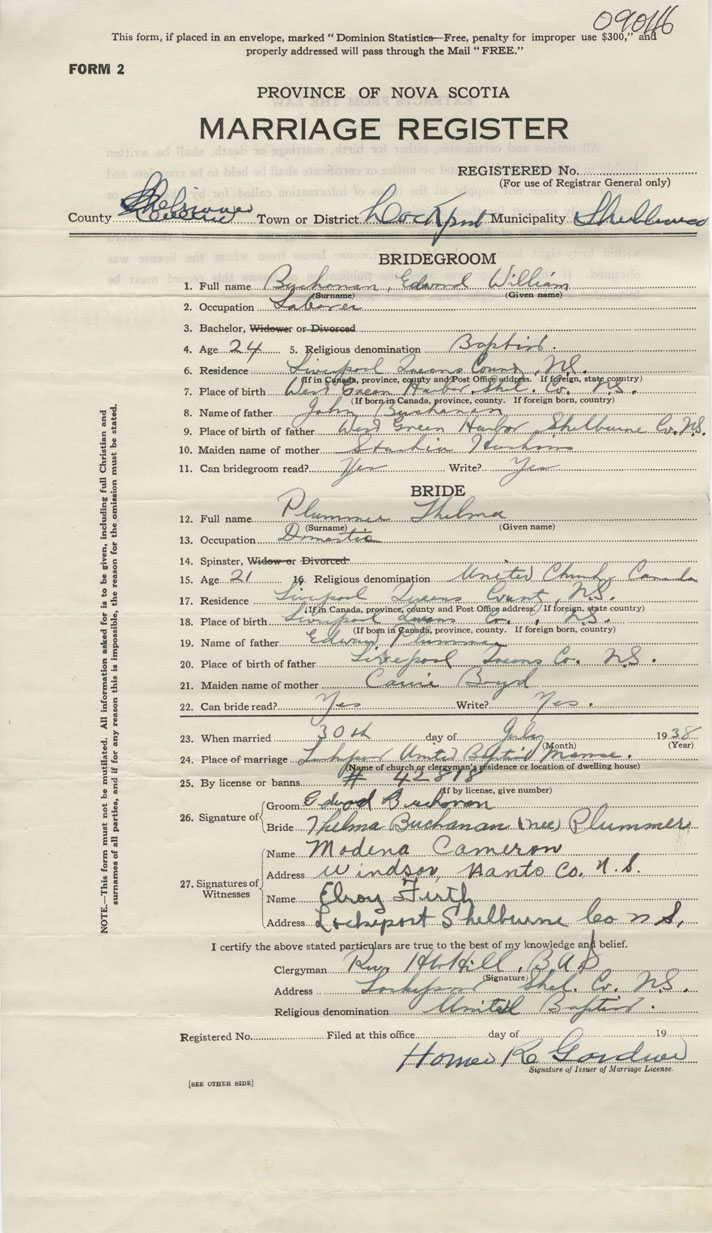 09016
This form, if placed in an envelope, marked "Dominion Statistics—Free, penalty for improper use $300," and
properly addressed will pass through the Mail "FREE."
FORM 2
PROVINCE OF NOVA SCOTIA
MARRIAGE REGISTER
REGISTERED No.
(For use of Registrar General only)
County Town or District Lockport Municipality Shelburne
BRIDEGROOM
1. Full name Buchanan, Edward William
(Surname) (Given name)
2. Occupation Laborer
3. Bachelor, Widower or Divorced
4. Age 24 5. Religious denomination Baptist.
6. Residence Liverpool Queens County, N.S.
(If in Canada, province, county and Post Office address. If foreign, state country)
7. Place of birth West Green Harbor, Shel. Co. N.S.
(If born in Canada, province, county. If foreign born, country)
8. Name of father John Buchanan
9. Place of birth of father West Green Harbor, Shelburne Co. N.S.
10. Maiden name of mother
11. Can bridegroom read? Yes Write? Yes
BRIDE
12. Full name Plummer Thelma
(Surname) (Given name)
13. Occupation Domestic
14. Spinster, Widow or Divorced
15. Age 21 16. Religious denomination United Church Canada
17. Residence Liverpool Queens County, N.S.
(If in Canada, province, county and Post Office address. If foreign, state country)
18. Place of birth Liverpool Queens Co., N.S.
(If born in Canada, province, county. If foreign born, country)
19. Name of father Edwin Plummer
20. Place of birth of father Liverpool Queens Co. N.S.
21. Maiden name of mother Carrie Boyd
22. Can bride read? Yes Write? Yes.
23. When married 30th day of July 1938
(Month) (Year)
24. Place of marriage Lockeport United Baptist Manse.
(Name of church or clergyman's residence or location of dwelling house)
25. By license or banns # 42818
(If by license, give number)
26. Signature of Groom Edward Buchanan
Bride Thelma Buchanan (nee) Plummer
27. Signatures of Witnesses
Name Modena Cameron
Address Windsor, Hants Co. N.S.
Name Elroy Firth
Address Lockeport Shelburne Co N.S.
I certify the above stated particulars are true to the best of my knowledge and belief.
Clergyman Rev. Hill, B.A.
(Signature)
Address Lockeport Shel. Co. N.S.
Religious denomination United Baptist.
Registered No. Filed at this office day of 19
Homer
Signature of Issuer of Marriage License.
[SEE OTHER SIDE]
NOTE.—This form must not be mutilated. All information asked for is to be given, including full Christian and
surnames of all parties, and if for any reason this is impossible, the reason for the omission must be stated.